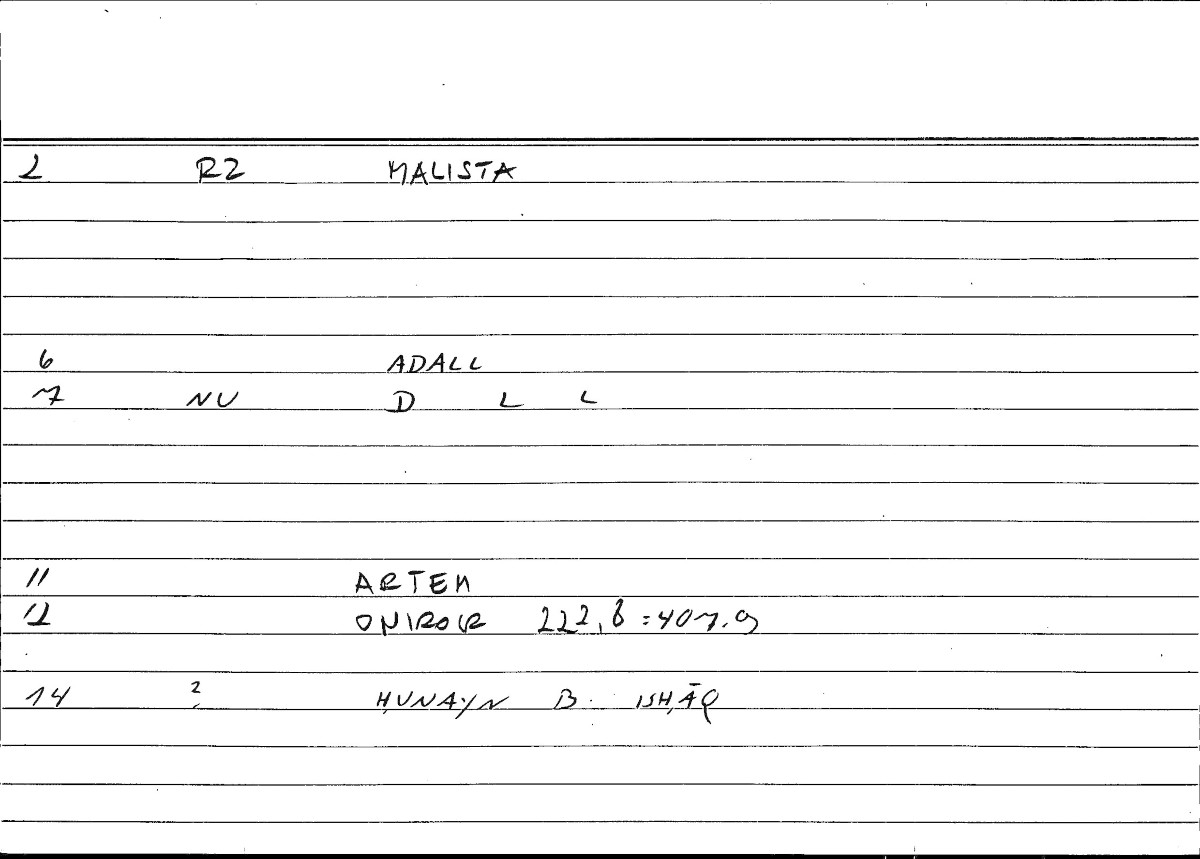 2 RZ MALISTA
6 ADALL
7 NU D L L
11 ARTEM
12 ONIROCR 222,8 = 407.9
14 ? ḤUNAYN B. ISḤĀQ